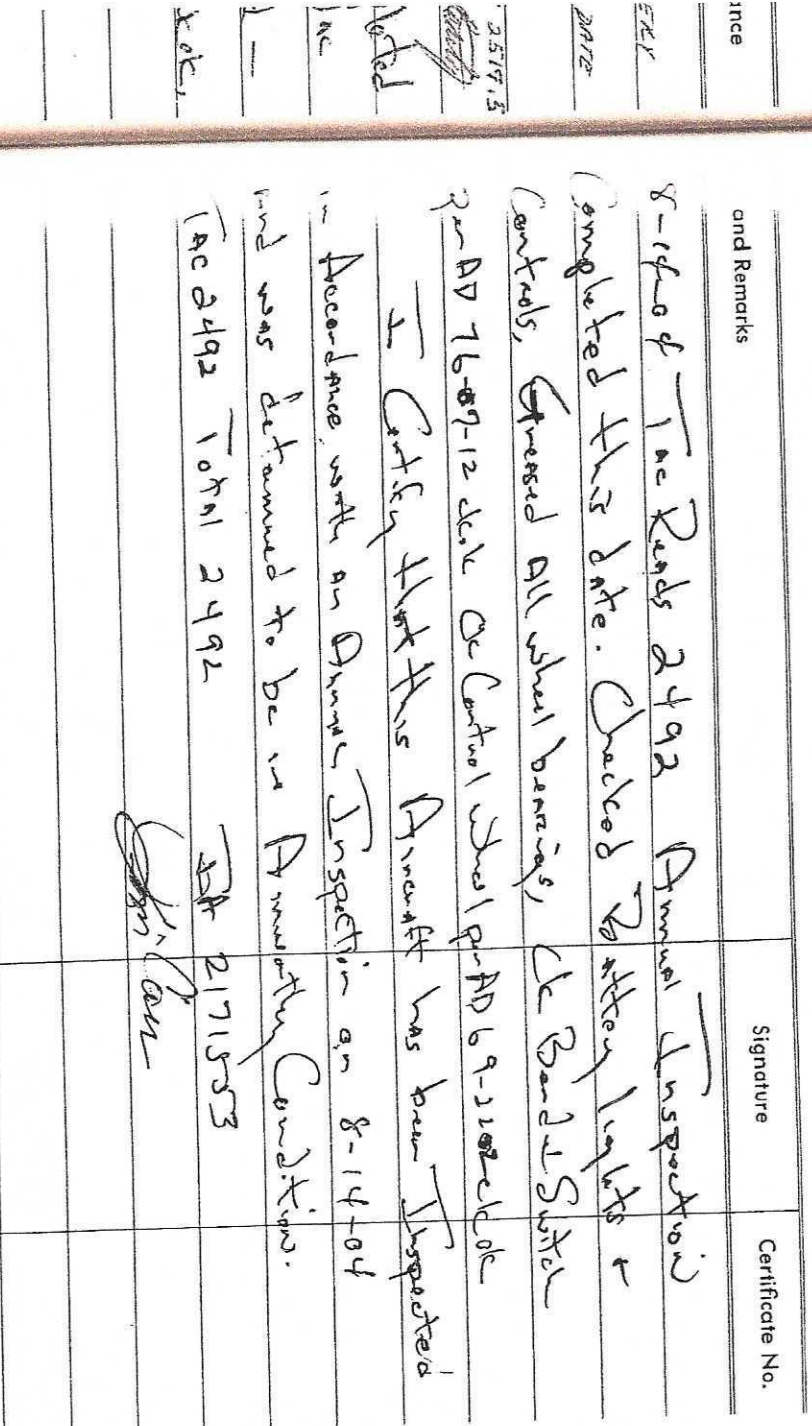 ance
ERY
DATE
2519.5
loted
inc
x ok,
and Remarks
Signature
Certificate No.
8-14-04 Tac Reads 2492 Annual Inspection
Completed this date. Checked Battery lights +
Controls, Greased All wheel bearings, Ck Bendix Switch
per AD 76-07-12 ck ok Ck Control wheel per AD 69-22-02 ck ok
I Certify that this Aircraft has been Inspected
in Accordance with an Annual Inspection on 8-14-04
and was determined to be in Airworthy Condition.
Tac 2492 Total 2492 IA 2171553